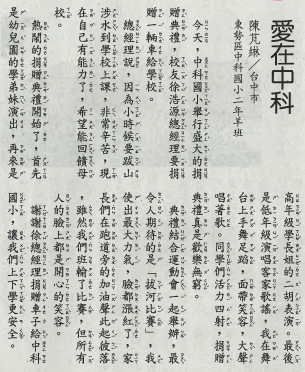 愛在中科
陳芃琳／台中市
東勢區中科國小二年羊班
今天，中科國小舉行盛大的捐
贈典禮，校友徐浩源總經理要捐
贈一輛車給學校。
總經理說，因為小時候要跋山
涉水到學校上課，非常辛苦，現
在自己有能力了，希望能回饋母
校。
熱鬧的捐贈典禮開始了，首先
是幼兒園的學弟妹演出，再來是
高年級學長姐的二胡表演。最後
是低年級演唱客家歌謠，我在舞
台上手舞足蹈，面帶笑容，大聲
唱著歌。同學們活力四射，捐贈
典禮真是歡樂無窮。
典禮結合運動會一起舉辦，最
令人期待的是「拔河比賽」，我
使出最大力氣，臉都漲紅了，家
長們在跑道旁的加油聲此起彼落
，雖然我們班輸了比賽，但所有
人的臉上都是開心的笑容。
謝謝徐總經理捐贈車子給中科
國小，讓我們上下學更安全。